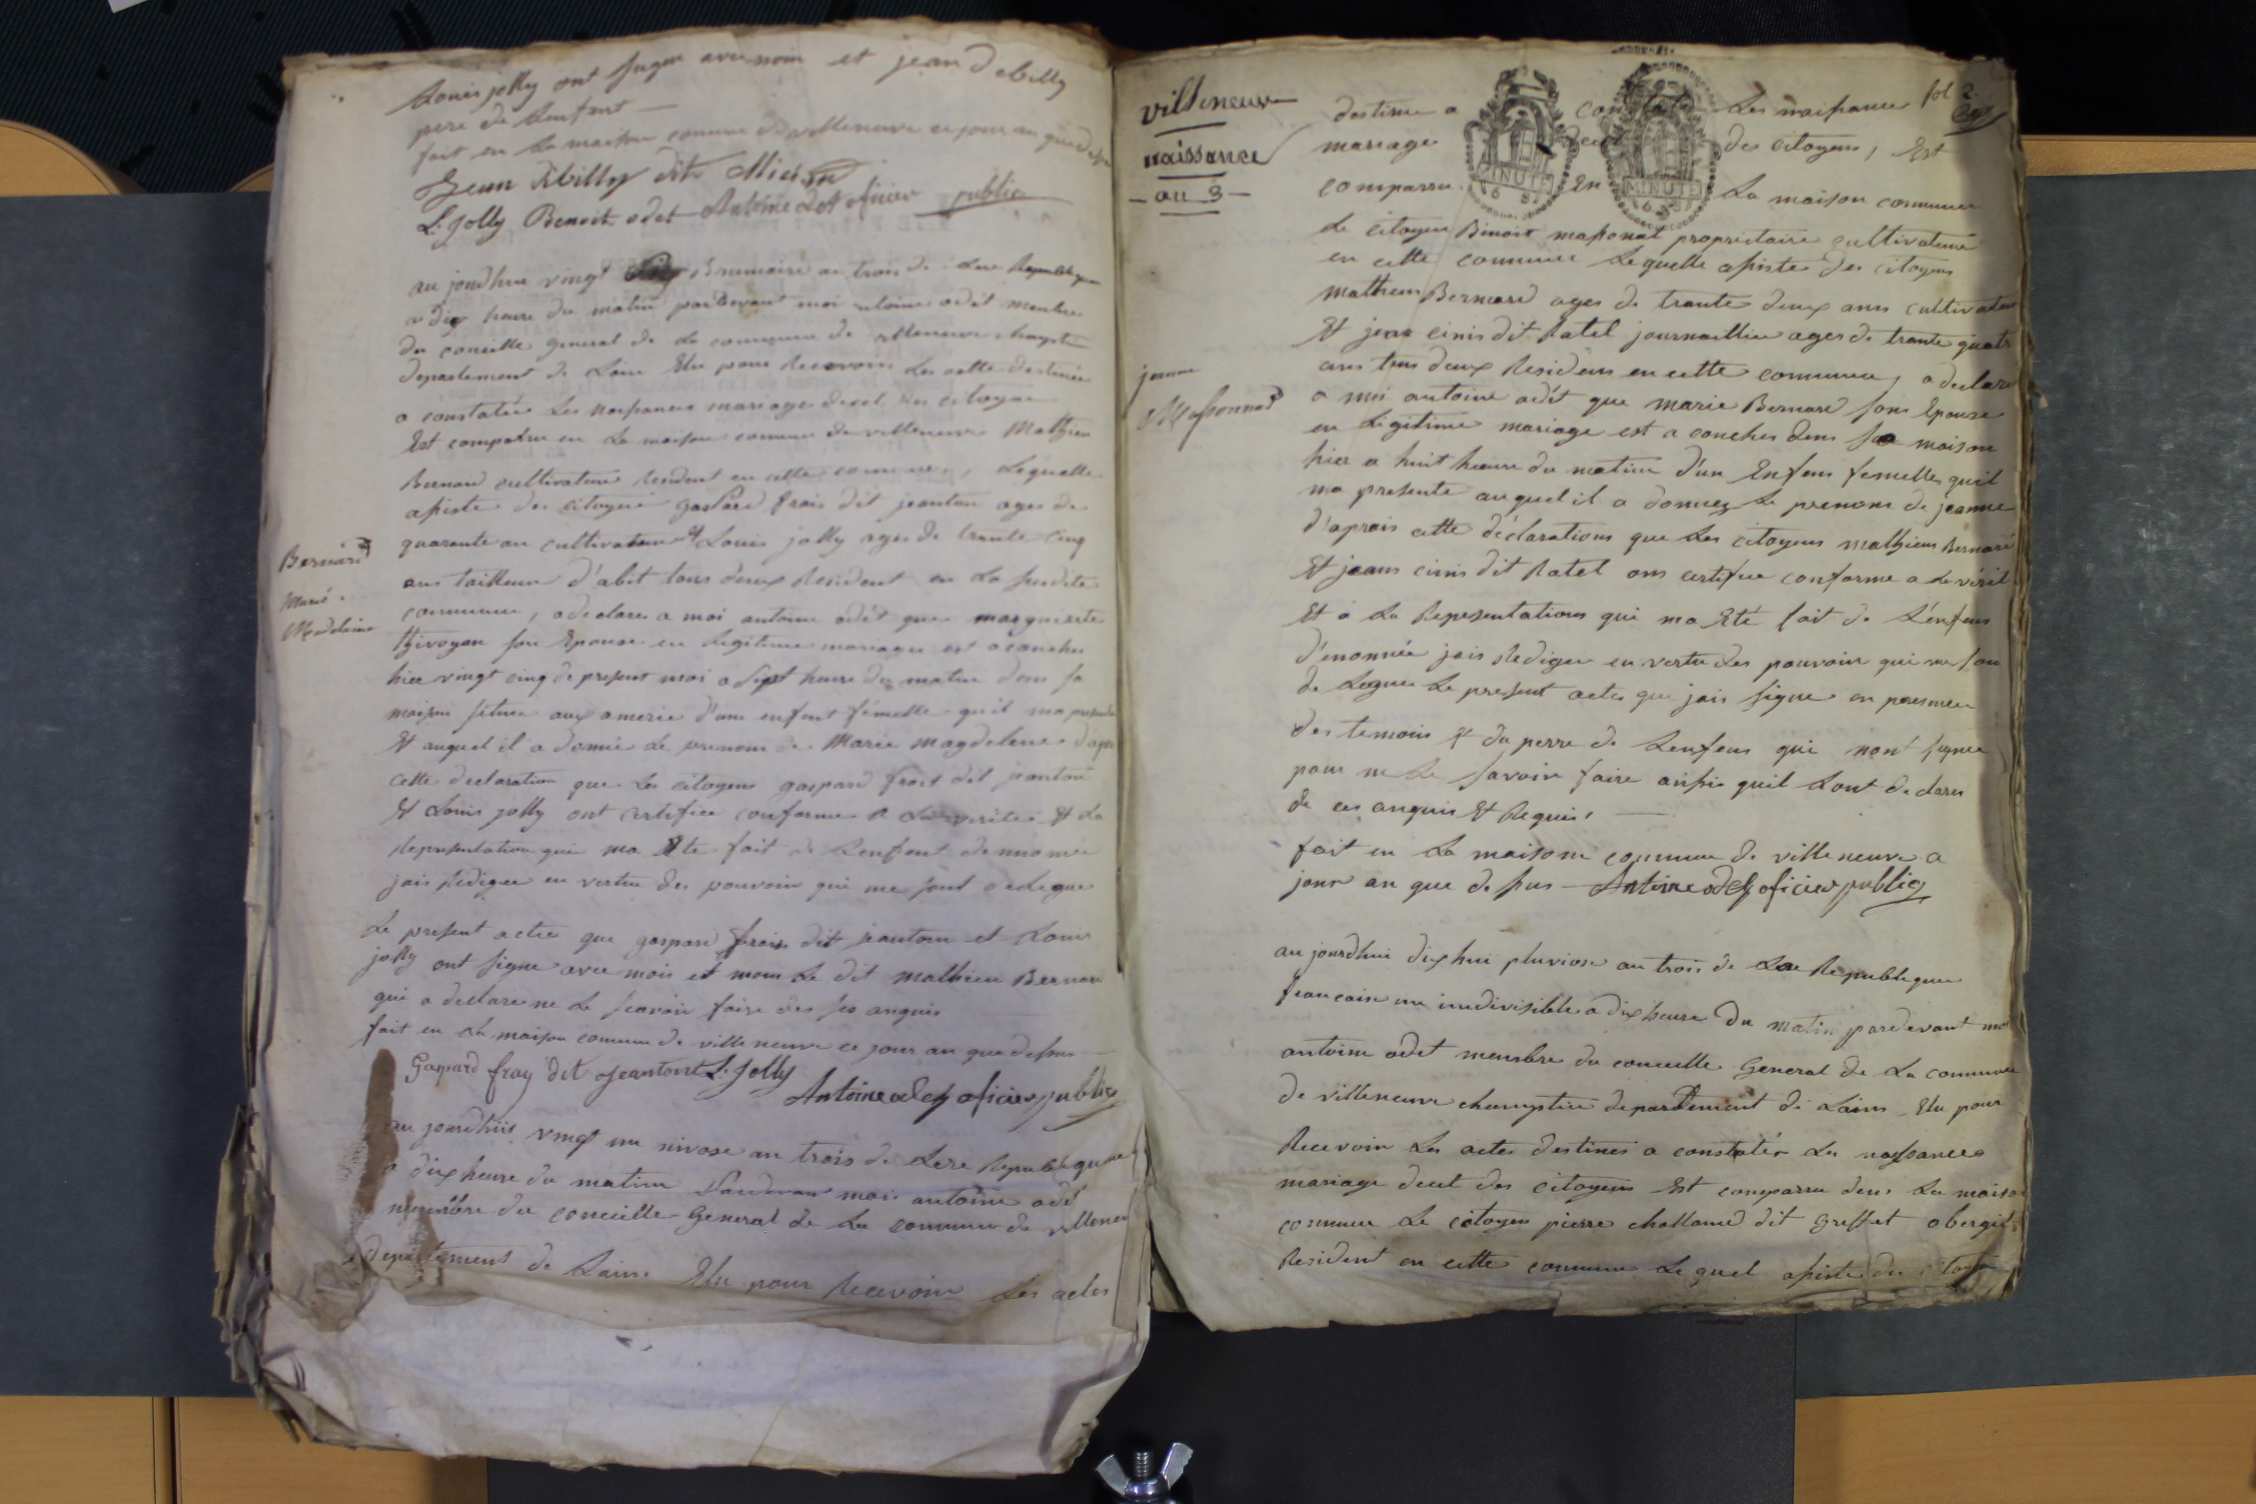 Louis jolly ont signer avec moi et jean debilly
pere de Lenfant
fait en La maison comune de villeneuve ce jour an que desu
Jean Debilly dit
L. Jolly Benoit odet Antoine odet oficier public
au jourdhui vingt Brumaire an trois de Lere Republique
a dix heure du matin pardevant moi antoine odet membre
du conceille general de La commune de villeneuve
departement de Lain Elu pour Recevoir Les actte destinée
a constatée Les naissances mariage decet des citoyen
Est comparue en La maison comune de villeneuve Mathieu
Bernard cultivateur Resident en cette commune, Lequelle
asisté des citoyens gaspard frais dit jeanton ages de
quarante an cultivateur et Louis jolly ages de trante cinq
Bernard
ans tailleur d'abit tous deux Resident en La susdite
Marie
Madelaine
commune, a declarer a moi antoine odet que marguerite
son Epouse en Legitime mariage est acouches
hier vingt cinq de present moi a sept heure du matin dans sa
maison situee aux d'une enfant femelle qu'il ma presente
Et auquel il a donnée Le prenom de Marie magdeleine dapres
cette declaration que Les citoyens gaspard frais dit jeanton
Et Louis jolly ont certifiée conforme a La verite Et La
Representation qui ma Ete fait de Lenfent denomée
jais Rediger en vertu des pouvoir qui me sont deleguer
Le present actee que gaspard frais dit jeanton et Louis
jolly ont signe avec moi et non Le dit mathieu Bernard
qui a declare ne Le scavoir faire des ses anquis
fait en La maison comune de villeneuve ce jour an que desus
Gaspard fray dit Jeanton L. Jolly
Antoine odet oficier public
au jourdhuis vingt un nivose an trois de Lere Republique
a dix heure du matin pardevant moi antoine odet
membre du conceille General de La commune de villeneuve
departement de Lain Elu pour Recevoir Les actes
villeneuve
naissance
an 3
fol 2
destine a constater Les naissance
mariage decet des citoyens, Est
MINUTE
MINUTE
comparru En La maison commune
Le citoyen Binoit massonat propriétaire cultivateur
en cette commune Lequelle asistes des citoyens
mathieu Bernard ages de trante deux ans cultivateur
Et jean cinis dit Ratel journaillier ages de trante quatr
jeanne
Massonnat
ans tous deux Residens en cette commune, a declare
a moi antoine odét que marie Bernard sons Epouse
en Legitime mariage est a couches dens sa maison
hier a huit heure du matin d'un Enfens femelles quil
ma presente auquel il a donnez Le prenom de jeanne
d'aprais cette déclarations que Les citoyens mathieu Bernard
Et jeans cinis dit Ratel ons certifie conforme a La vérité
Et a La Representations qui ma Eté fait de L'enfens
d'enomée jais Rediger en vertu des pouvoir qui me son
de Leguer Le present actes que jais signe en presence
des temoins et du perre de Lenfens qui nont signer
pour ne Le savoir faire ainsi quil Lont declarer
de ces anquis Et Requis,
fait en La maisone commune de villeneuve a
jour an que de sus Antoine odet oficier public
au jourdhui dix hui pluviose an trois de Lare Republique
francaise une inndivisibles a dix heure Du matin pardevant moi
antoine odet membre du conceille General de La commune
de villeneuve departement de Lains Elu pour
Recevoir Les actes destinés a constatér Les nassances
mariage decet des citoyens Est comparru dens La maison
commune Le citoyen pierre challand dit Greffet
Resident en cette commune Lequel asisté des citoyens